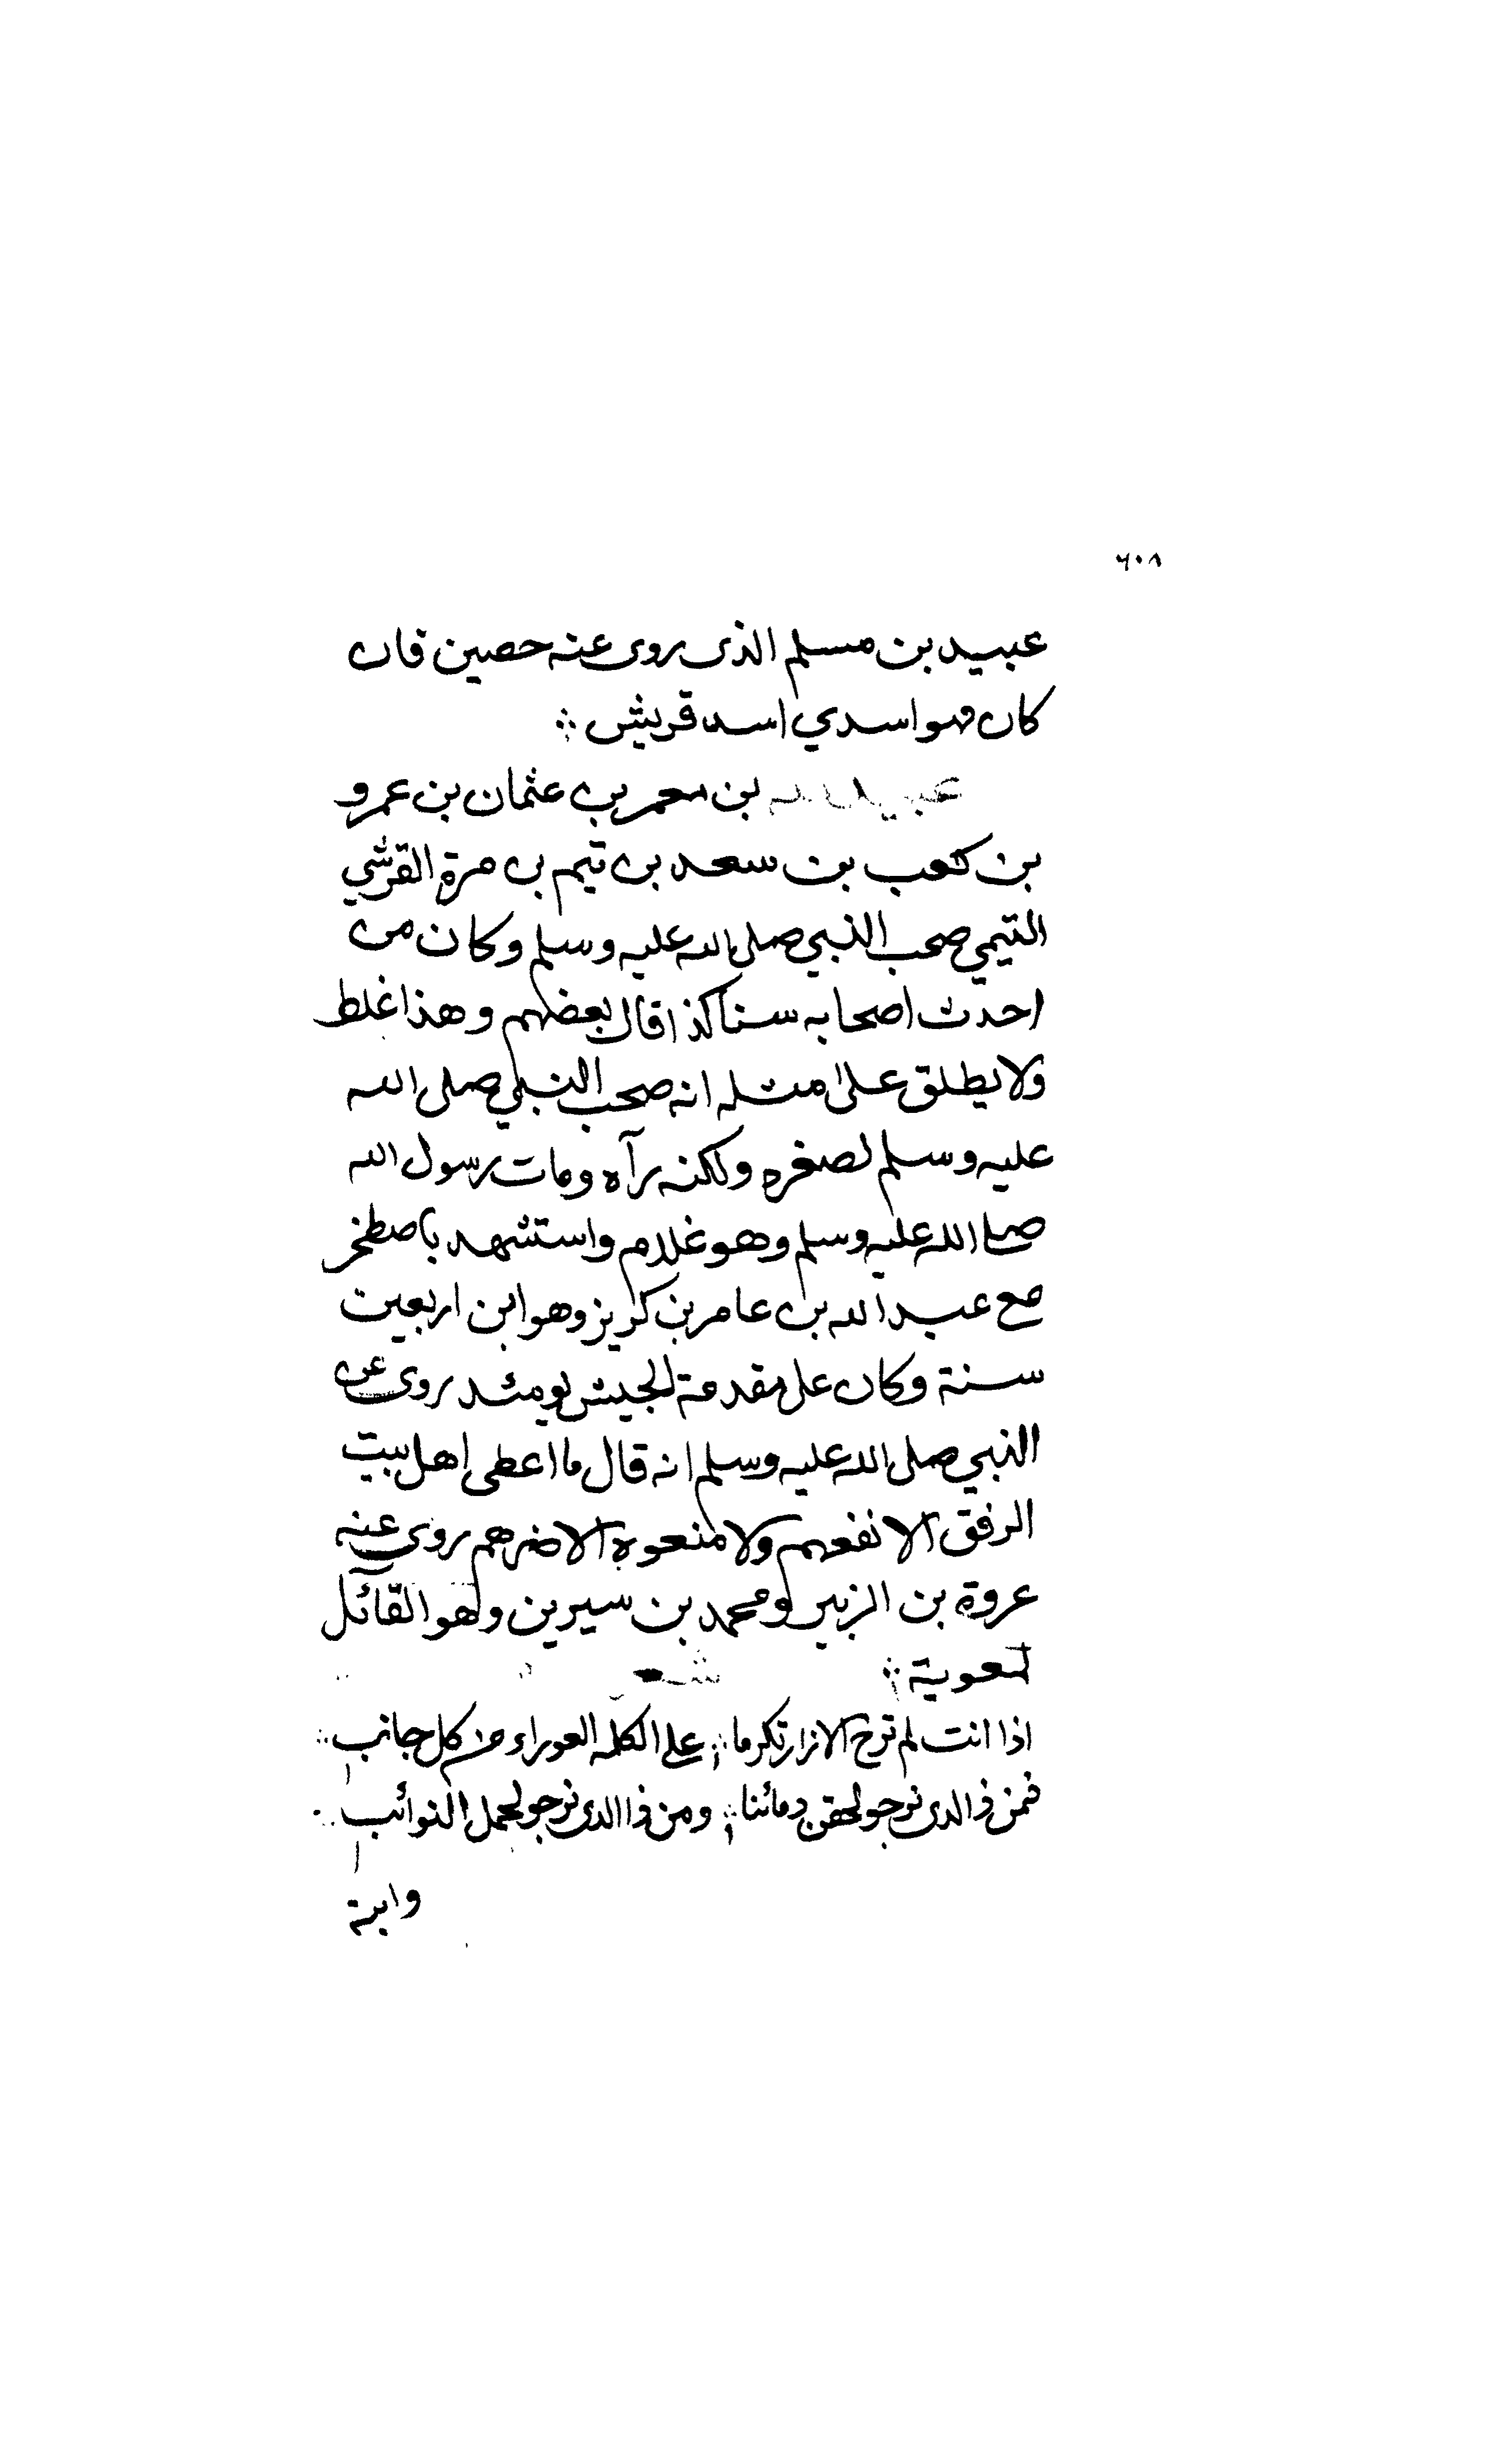 ٦٠٨
عبيد بن مسلم الذى روى عنه حصين فان
كان فهو اسدي اسد قريش
عبيد الله بن معمر بن عثمان بن عمرو
بن كعب بن سعد بن تيم بن مرة القرشي
التيمي صحب النبي صلى الله عليه وسلم وكان من
احدث اصحابه سنا كذا قال بعضهم وهذا غلط
ولا يطلق على مثله انه صحب النبي صلى الله
عليه وسلم لصغره ولكنه رآه ومات رسول الله
صلى الله عليه وسلم وهو غلام واستشهد باصطخر
مع عبد الله بن عامر بن كريز وهو ابن اربعين
سنة وكان على مقدمة الجيش يومئذ روى عن
النبي صلى الله عليه وسلم انه قال ما اعطى اهل بيت
الرفق الا نفعهم ولا منعوه الا ضرهم روى عنه
عروة بن الزبير ومحمد بن سيرين وهو القآئل
لمعوية شعر
اذا انت لم ترخ الازار تكرما على الكلمه العوراء من كل جانب
فمن ذا الذى نرجو لحقن دمائنا ومن ذا الذى نرجو لحمل النوائب
وابنه